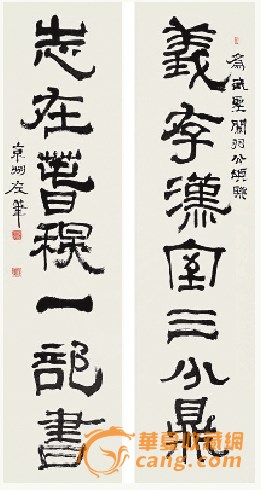 為武聖關羽公頌聯
義存漢室三分鼎
志在春秋一部書
左筆
华夏收藏网
cang.com